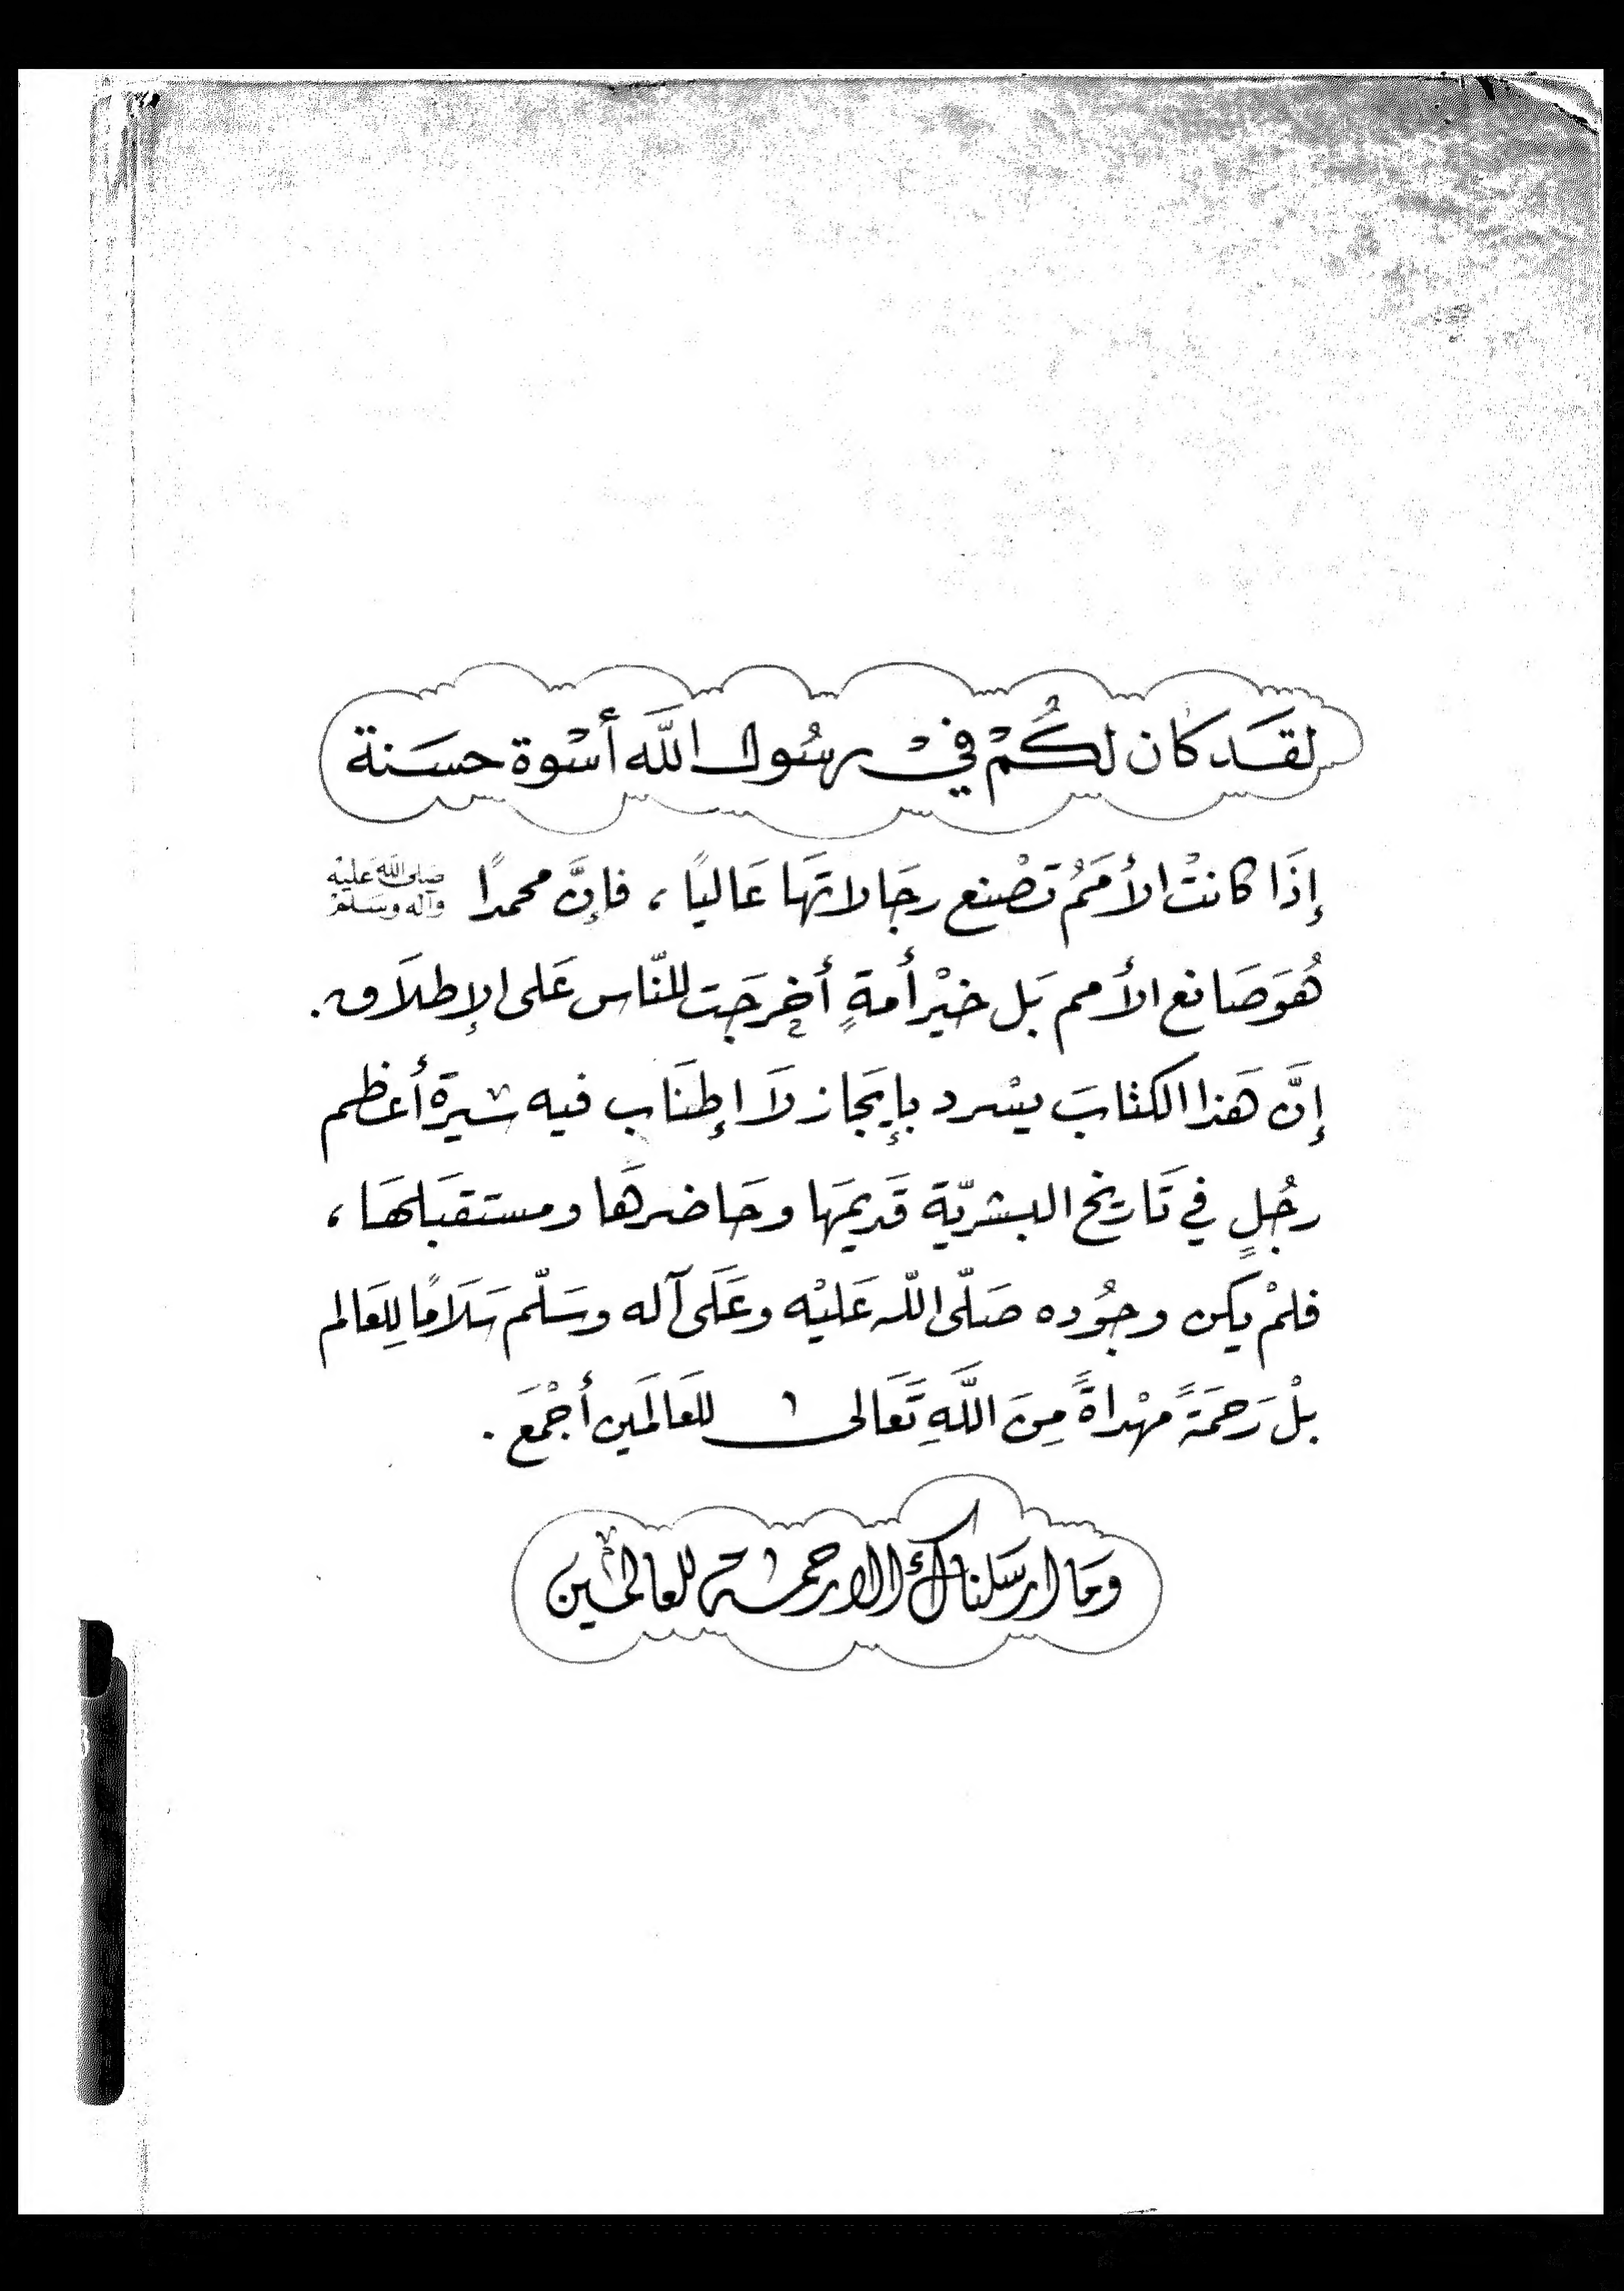 لقَد كان لكُمْ فيْ رسُول اللَّه أسْوة حسَنة
إذَا كانتْ الأمَمُ تصْنع رجَالاتهَا عَاليًا، فإنَّ محمدًا صلى الله عليه وآله وسلم
هُوَ صَانع الأمم بَل خيْر أمةٍ أخرجَت للنّاس عَلى الإطلاَق.
إنَّ هَذا الكتابَ يسْرد بإيجَاز لاَ إطنَاب فيه سيرَة أعظم
رجُلٍ في تَاريخ البشريّة قَديمهَا وحَاضرهَا ومستقبَلهَا،
فلمْ يكن وجُوده صَلّى اللّه عَليْه وعَلَى آله وسَلّم سَلاَمًا لِلعَالم
بلْ رَحمَةً مهْداةً مِنَ اللَّهِ تَعَالى للعَالَمين أجْمَع.
وَمَا ارسَلناك الا رحمة للعالمين